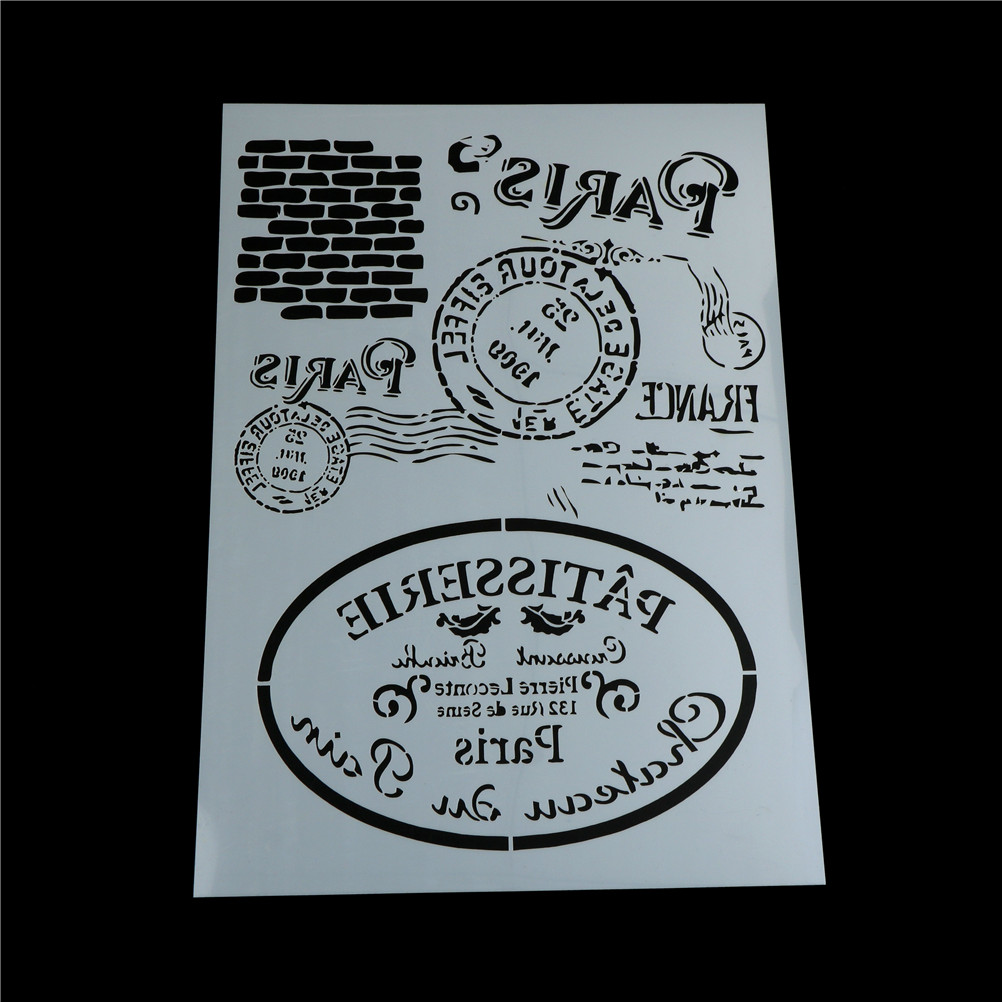 PARIS
1ER ETAGE DE LA TOUR EIFFEL
25
JUIL
1909
PARIS
1ER ETAGE DE LA TOUR EIFFEL
25
JUIL
1909
FRANCE
PÂTISSERIE
Croissant Brioche
Pierre Leconte
132 Rue de Seine
Paris
Chateau Du Pain